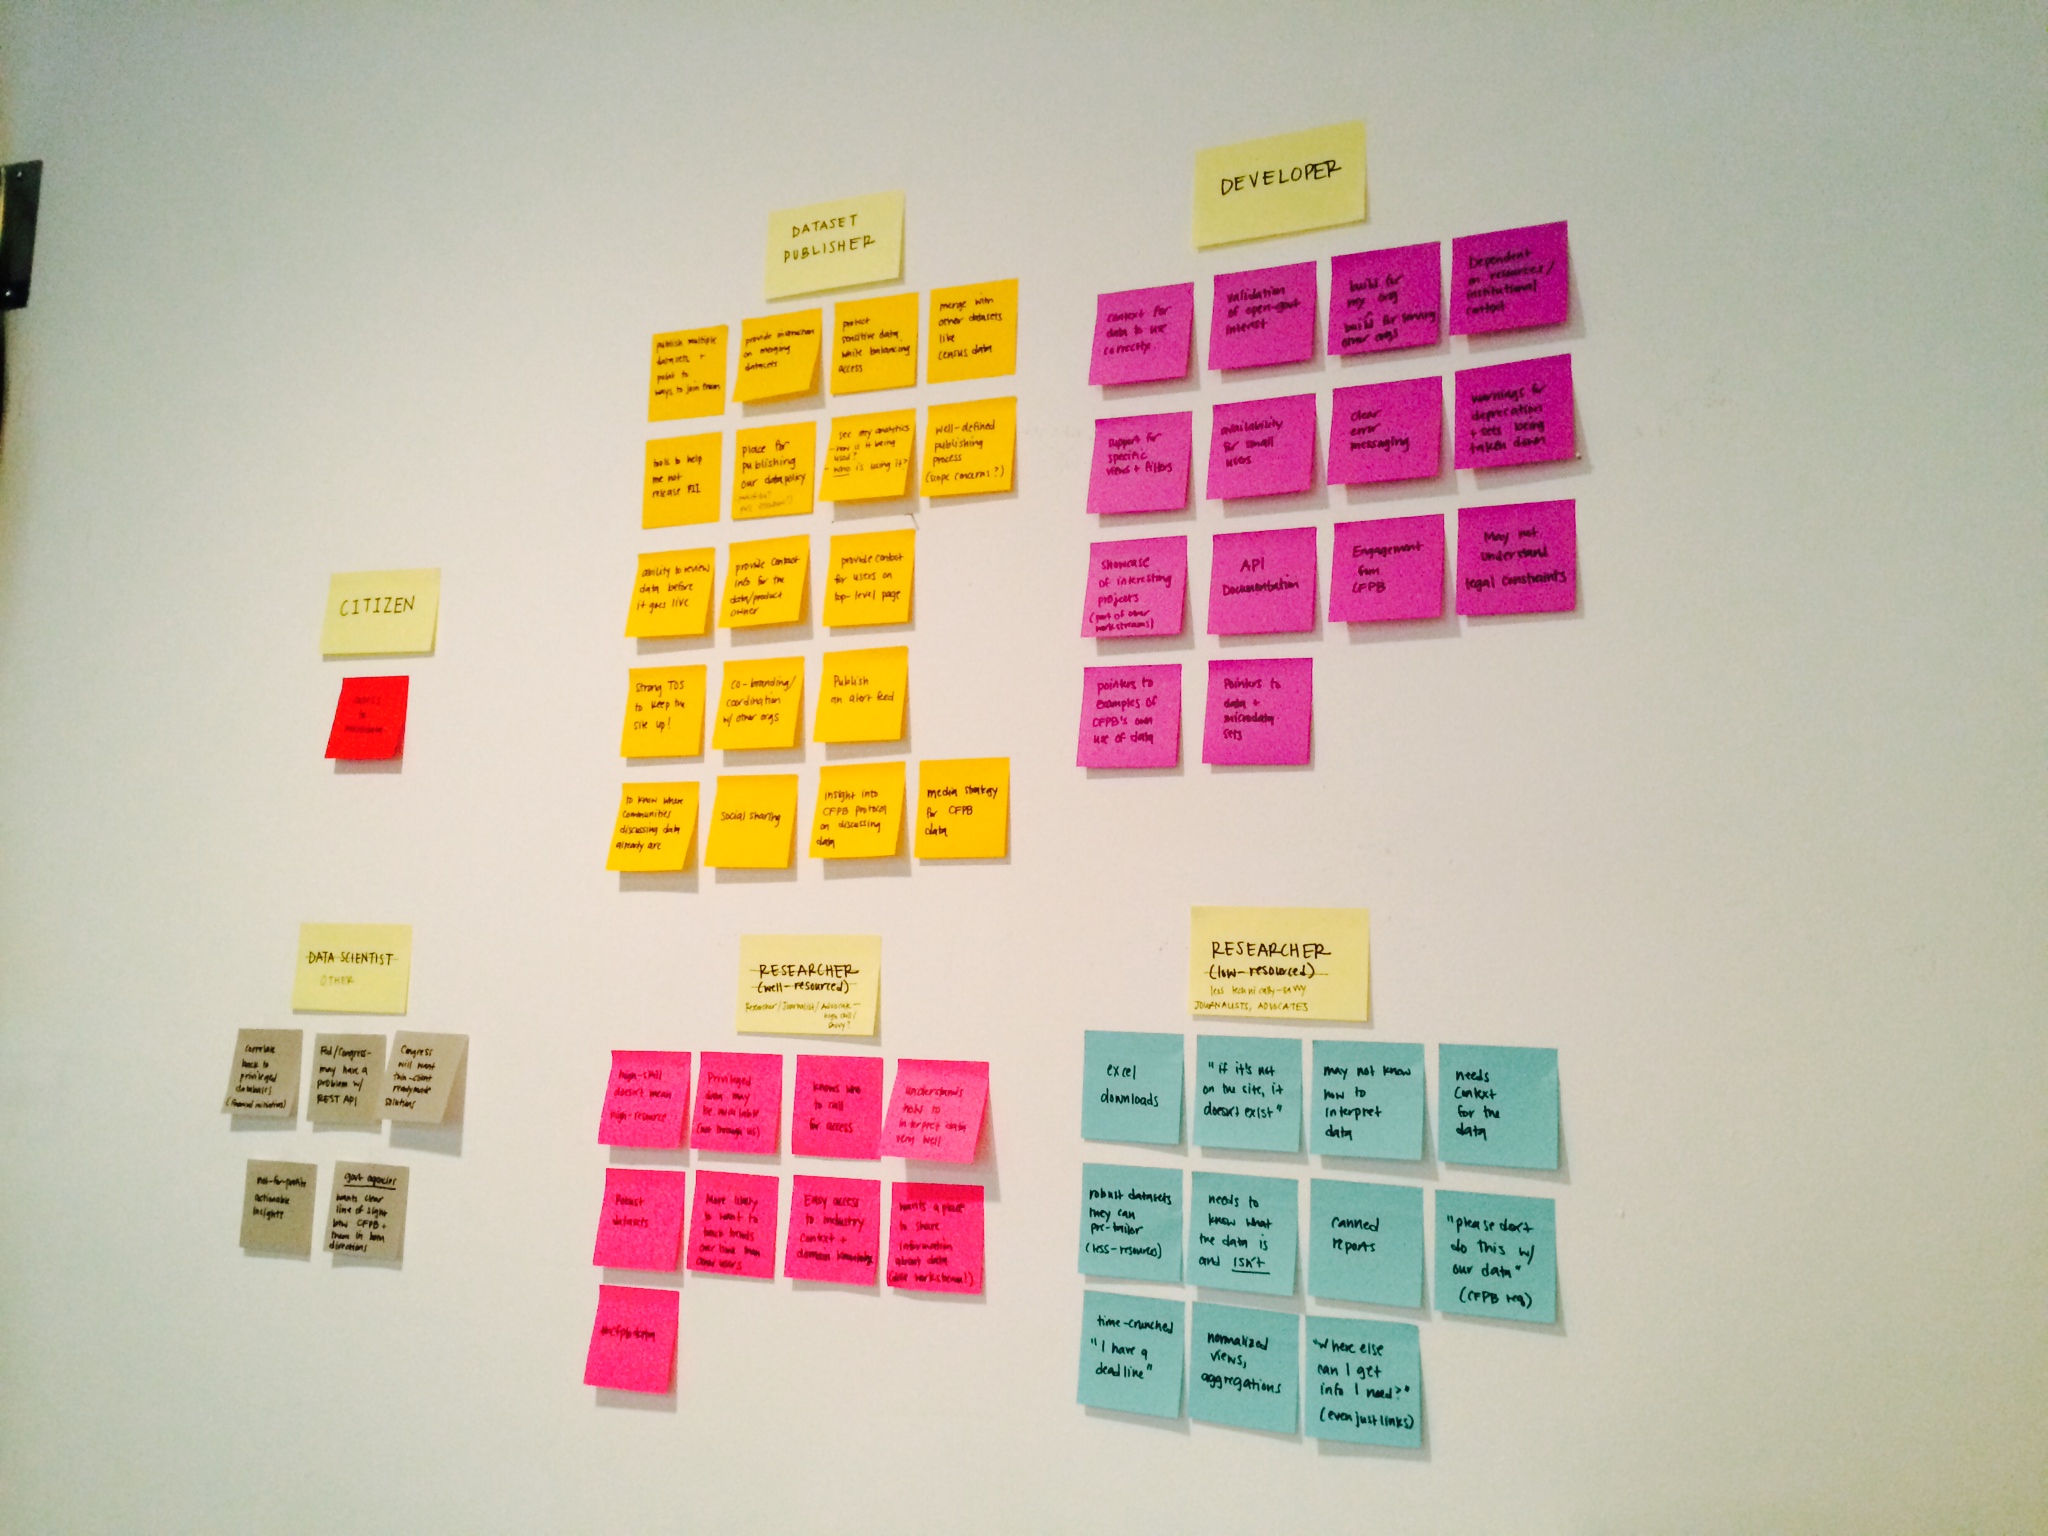 DATASET
PUBLISHER
publish multiple
datasets +
point to
ways to join them
provide instruction
on merging
datasets
protect
sensitive data
while balancing
access
merge with
other datasets
like
census data
tools to help
me not
release PII
place for
publishing
our data policy
see my analytics
- how is it being
used?
- who is using it?
well-defined
publishing
process
(scope concerns?)
ability to review
data before
it goes live
provide contact
info for the
data/product
owner
provide contact
for users on
top-level page
strong TOS
to keep the
site up!
co-branding/
coordination
w/ other orgs
Publish
an alert feed
to know where
communities
discussing data
already are
social sharing
insight into
CFPB protocol
on discussing
data
media strategy
for CFPB
data
DEVELOPER
context for
data to use
correctly.
validation
of open-gov't
interest
build for
my org
build for serving
other orgs
Dependent
on resources/
institutional
context
support for
specific
views + filters
availability
for small
users
clear
error
messaging
warnings for
deprecation
+ sets being
taken down
showcase
of interesting
projects
(part of other
workstreams)
API
Documentation
Engagement
from
CFPB
May not
understand
legal constraints
pointers to
examples of
CFPB's own
use of data
Pointers to
data +
microdata
sets
CITIZEN
access
to
microdata
DATA SCIENTIST
OTHER
correlate
back to
privileged
databases
(financial initiatives)
Fed/Congress-
may have a
problem w/
REST API
Congress
will want
thin-client
readymade
solutions
not-for-profits
actionable
insights
gov't agencies
wants clear
line of sight
btw CFPB +
them in both
directions
RESEARCHER
(well-resourced)
Researcher/Journalist/Advocate -
high skill/
savvy?
high-skill
doesn't mean
high-resource
Privileged
data may
be available
(not through us)
knows who
to call
for access
understands
how to
interpret data
very well
Robust
datasets
More likely
to want to
track trends
over time than
other users
Easy access
to industry
context +
domain knowledge
wants a place
to share
information
about data
#cfpbdata
RESEARCHER
(low-resourced)
less technically-savvy
JOURNALISTS, ADVOCATES
excel
downloads
"if it's not
on the site, it
doesn't exist"
may not know
how to
interpret
data
needs
context
for the
data
robust datasets
they can
pre-tailor
(less-resources)
needs to
know what
the data is
and isn't
canned
reports
"please don't
do this w/
our data"
(CFPB req)
time-crunched
"I have a
deadline"
normalized
views,
aggregations
"Where else
can I get
info I need?"
(even just links)